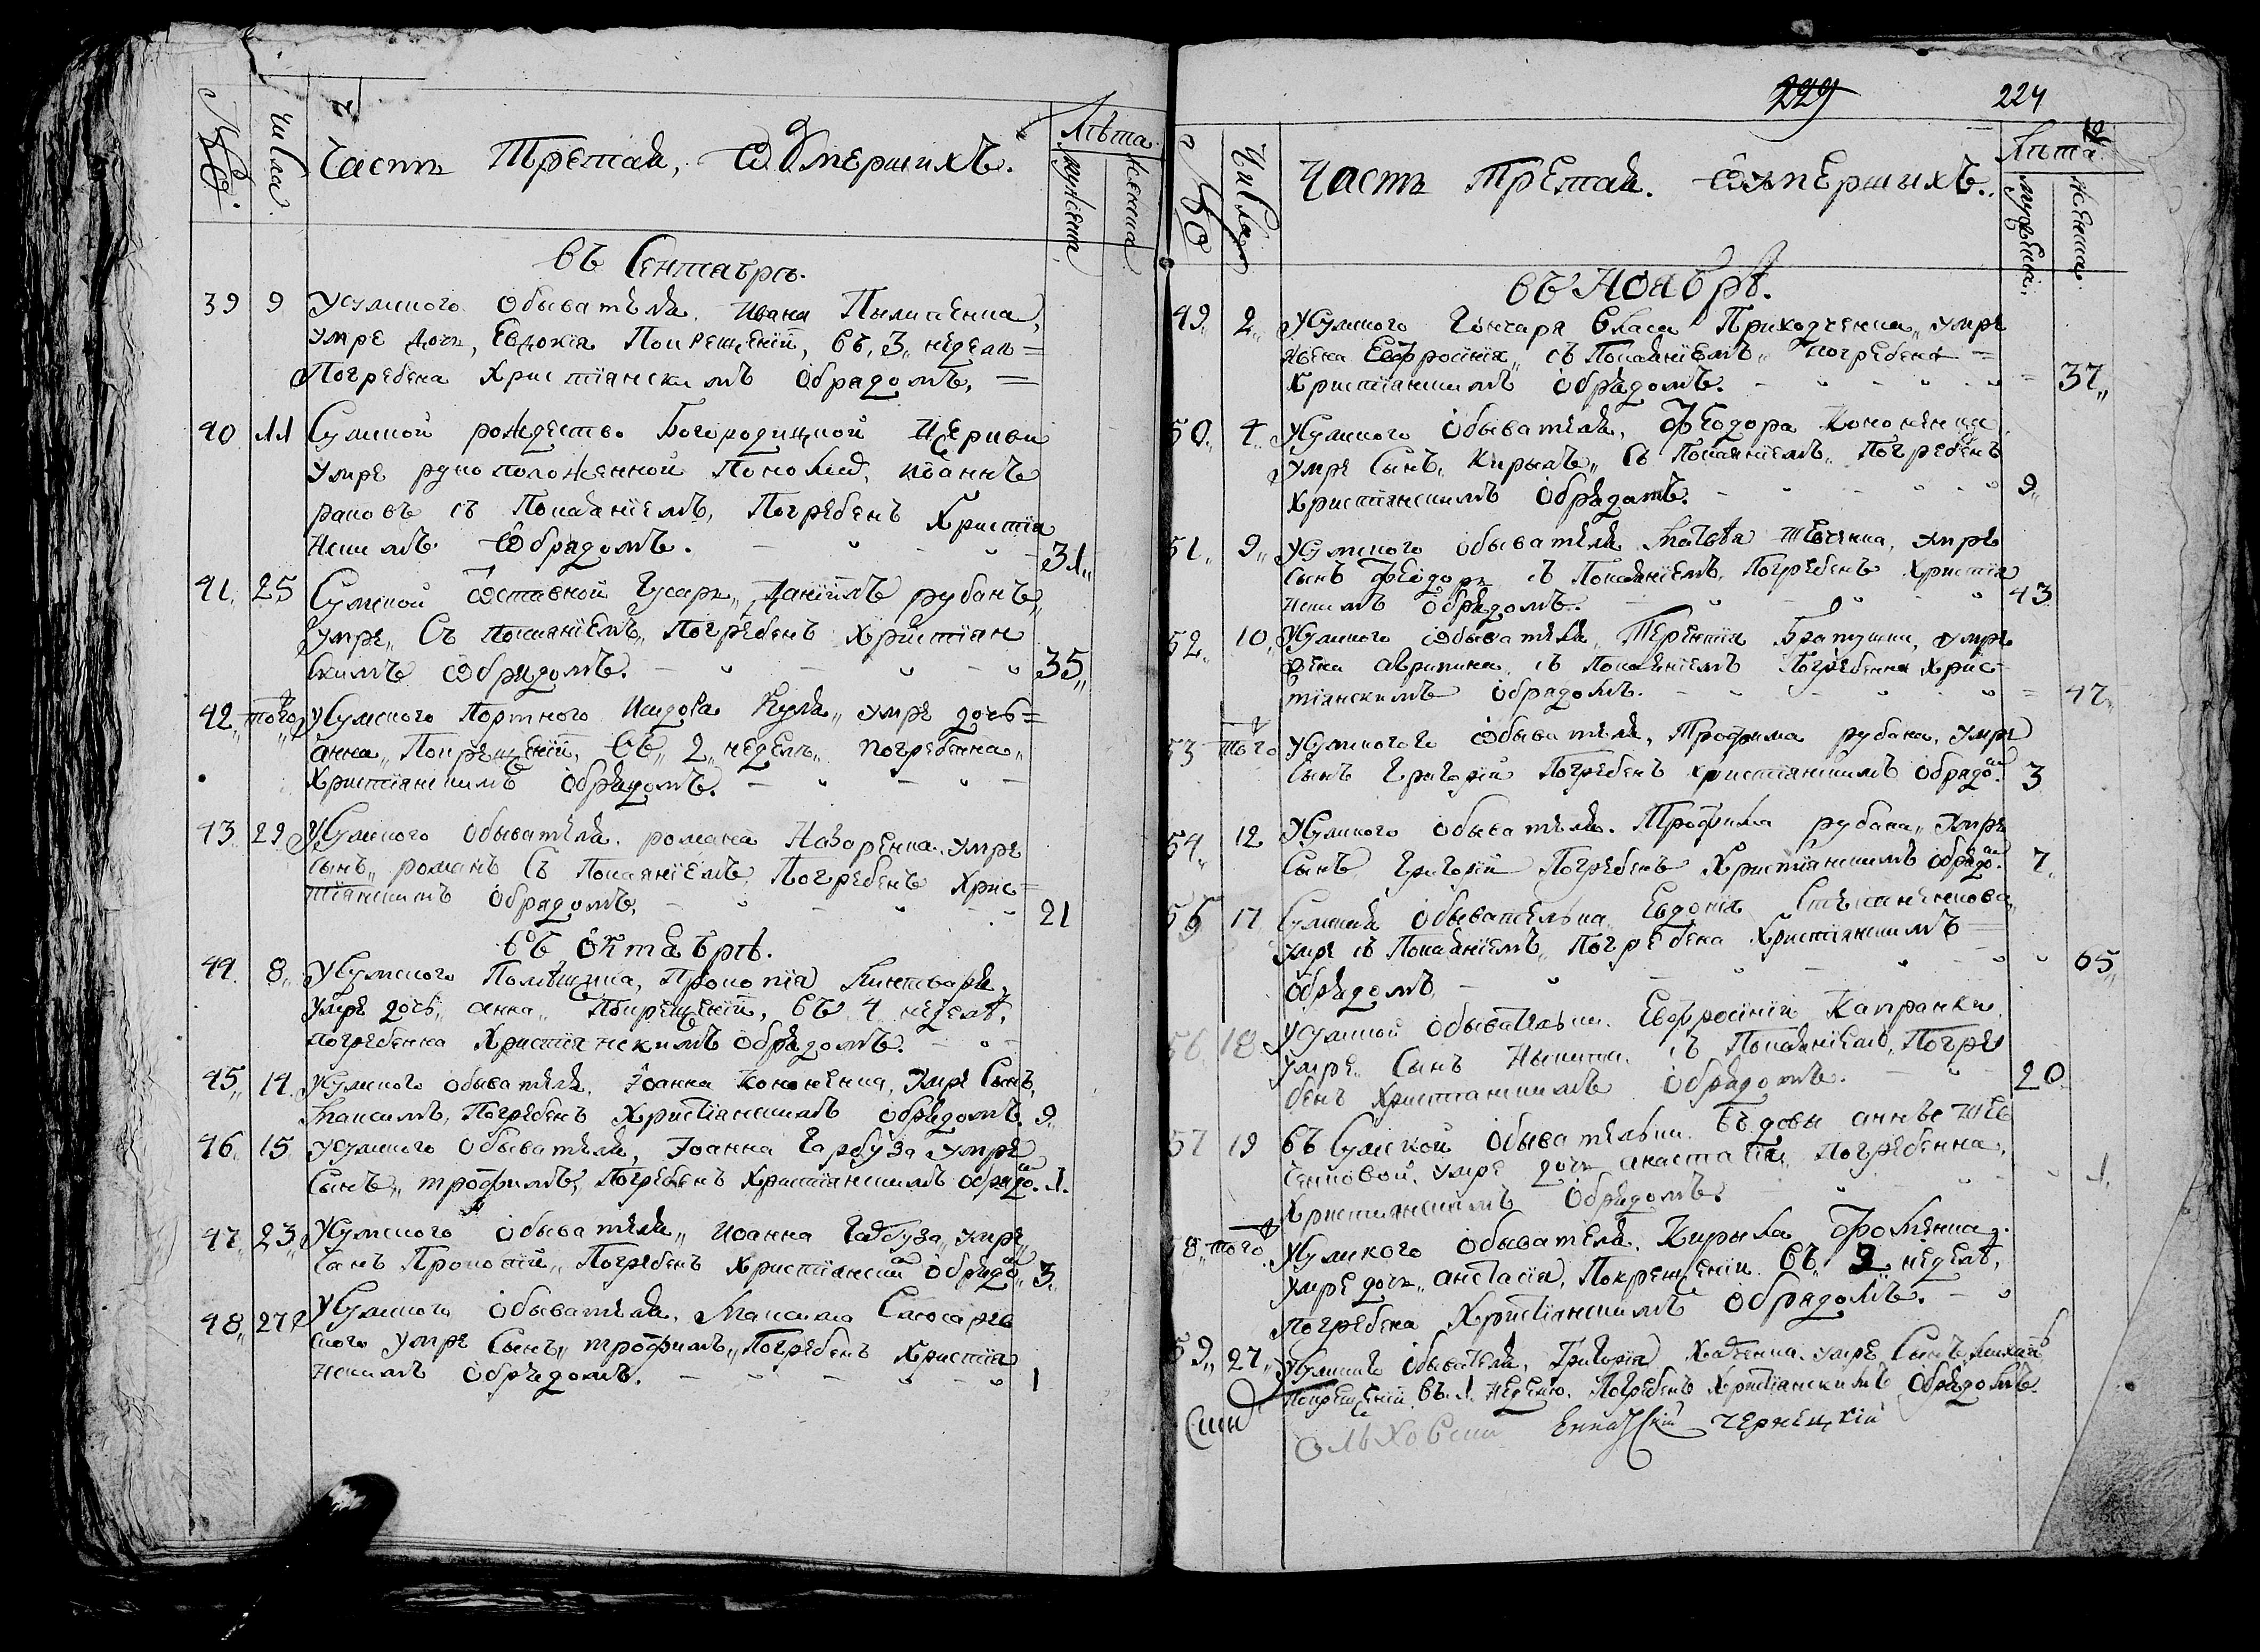 №
числа
Часть Третая, о Умершихъ.
Лѣта
мужеска
женска
въ Сентябрѣ.
39 9 У Сумского Обывателя Ивана Пилипенка,
умре дочь, Евдокія По крещеніи, въ, 3, недели =
Погребена Християнскимъ Обрадомъ, =
40 11 Сумской рождество Богородицкой Церкви
умре рукоположенной Пономар, Иоаннъ
раковъ съ Покаяніемъ, Погребенъ Христия
нскимъ Обрадомъ. 31
41 25 Сумской Отставной Гусаръ, Даніилъ рубанъ,
умре, Съ Покаяніемъ, Погребенъ Християн
скимъ Обрадомъ. 35
42 того У Сумского Портного Исидора Кула, умре дочь =
анна, По крещеніи, въ, 2, недели, погребенна,
Християнскимъ Обрадомъ.
43 29 У Сумского Обывателя романа Назоренка умре
Сынъ, романъ Съ Покаяніемъ, Погребенъ Хрис =
тиянскимъ Обрадомъ. 21
въ Октябрѣ.
44 8 У Сумского Помѣщика, Прокопія
умре дочь, анна, По крещеніи, въ 4 неделѣ,
погребенна Християнскимъ Обрадомъ.
45 14 У Сумского Обывателя, Іоанна Кононенка, Умре Сынъ,
Максимъ, Погребенъ Християнскимъ Обрадомъ. 9
46 15 У Сумского Обывателя, Іоанна Гарбуза умре
Сынъ, трофимъ, Погребенъ Християнскимъ Обрадо. 1.
47 23 У Сумского Обывателя, Иоанна Гарбуза, умре,
Сынъ Прокопій, Погребенъ Християнски Обрадо, 3,
48 27 У Сумского Обывателя, Максима Слюсарев
ского умре Сынъ, трофимъ, Погребенъ Христия
нскимъ Обрадомъ. 1
229 224
№
Числа
Часть Третая. О умершыхъ.
Лѣта
мужеска
женска
въ Ноябрѣ.
49 2 У Сумского Гончара Власа Приходченка, умре
жена Евфросинія, съ Покаяніемъ, погребена =
Християнскимъ Обрадомъ. 37
50 4 У Сумского Обывателя, Феодора Кононенка
умре Сынъ, Кирылъ, Съ Покаяніемъ, Погребенъ
Християнскимъ Обрадомъ. 9
51 9 У Сумского Обывателя Матвѣя Шевченка, умре
Сынъ Феодоръ съ Покаяніемъ, Погребенъ Христия
нскимъ Обрадомъ. 43
52 10 У Сумского Обывателя, Терентія умре
жена акрипина съ Покаяніемъ Погребенна Хрис =
тіанскимъ Обрадомъ. 47
53 того У Сумского Обывателя, Трофима рубана, умре
Сынъ Григорій Погребенъ Християнскимъ Обрадо. 3
54 12 У Сумского Обывателя. Трофима рубана, умре
Сынъ Григорій Погребенъ Християнскимъ Обрадо. 7
55 17 Сумская Обывателька Евдокія
умре съ Покаяніемъ, Погребена Християнскимъ
Обрадомъ 65
56 18 У Сумской Обывательки Евфросиніи Капранки
умре, Сынъ Никита, съ Покаяніемъ, Погре
бенъ Християнскимъ Обрадомъ. 20
57 19 въ Сумской Обывательки въдовы аннѣ Шев
ченковой, умре дочь анастасія, Погребенна,
Християнскимъ Обрадомъ. 1
58 того У Сумского Обывателя, Кирыла Фоменка
умре дочь, анстасія, По крещеніи въ, 3, неделѣ,
погребена Християнскимъ Обрадомъ.
59 27 У Сумскаго Обывателя, Григорія Хадченка умре Сынъ михаи
По крещеніи въ 1 неделю, Погребенъ Християнскимъ Обрадомъ.
Чернецкій